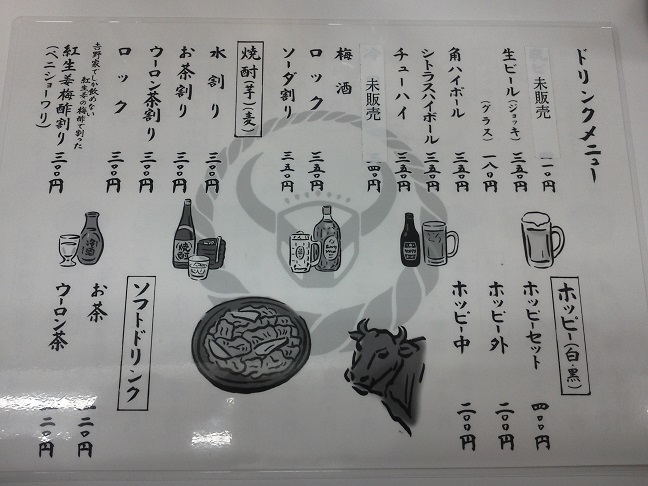 ドリンクメニュー
未販売 一〇円
生ビール(ジョッキ) 三五〇円
(グラス) 一八〇円
角ハイボール 三五〇円
シトラスハイボール 三五〇円
チューハイ 三五〇円
冷 未販売 四〇円
梅酒
ロック 三五〇円
ソーダ割り 三五〇円
焼酎(芋)(麦)
水割り 三〇〇円
お茶割り 三〇〇円
ウーロン茶割り 三〇〇円
ロック 三〇〇円
吉野家でしか飲めない
紅生姜の梅酢で割った
紅生姜梅酢割り 三〇〇円
(ベニショーワリ)
冷酒
焼酎
ホッピー(白・黒)
ホッピーセット 四〇〇円
ホッピー外 二〇〇円
ホッピー中 二〇〇円
ソフトドリンク
お茶 二〇円
ウーロン茶 二〇円